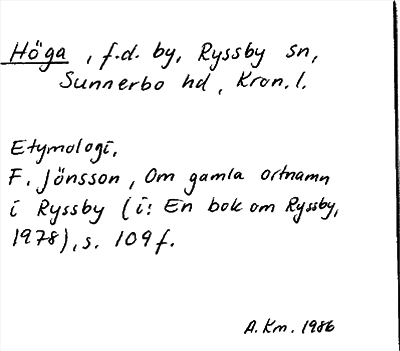 Höga, f.d. by, Ryssby sn,
Sunnerbo hd, Kron. l.
Etymologi.
F. Jönsson, Om gamla ortnamn
i Ryssby (i: En bok om Ryssby,
1978), s. 109 f.
A. Km. 1986